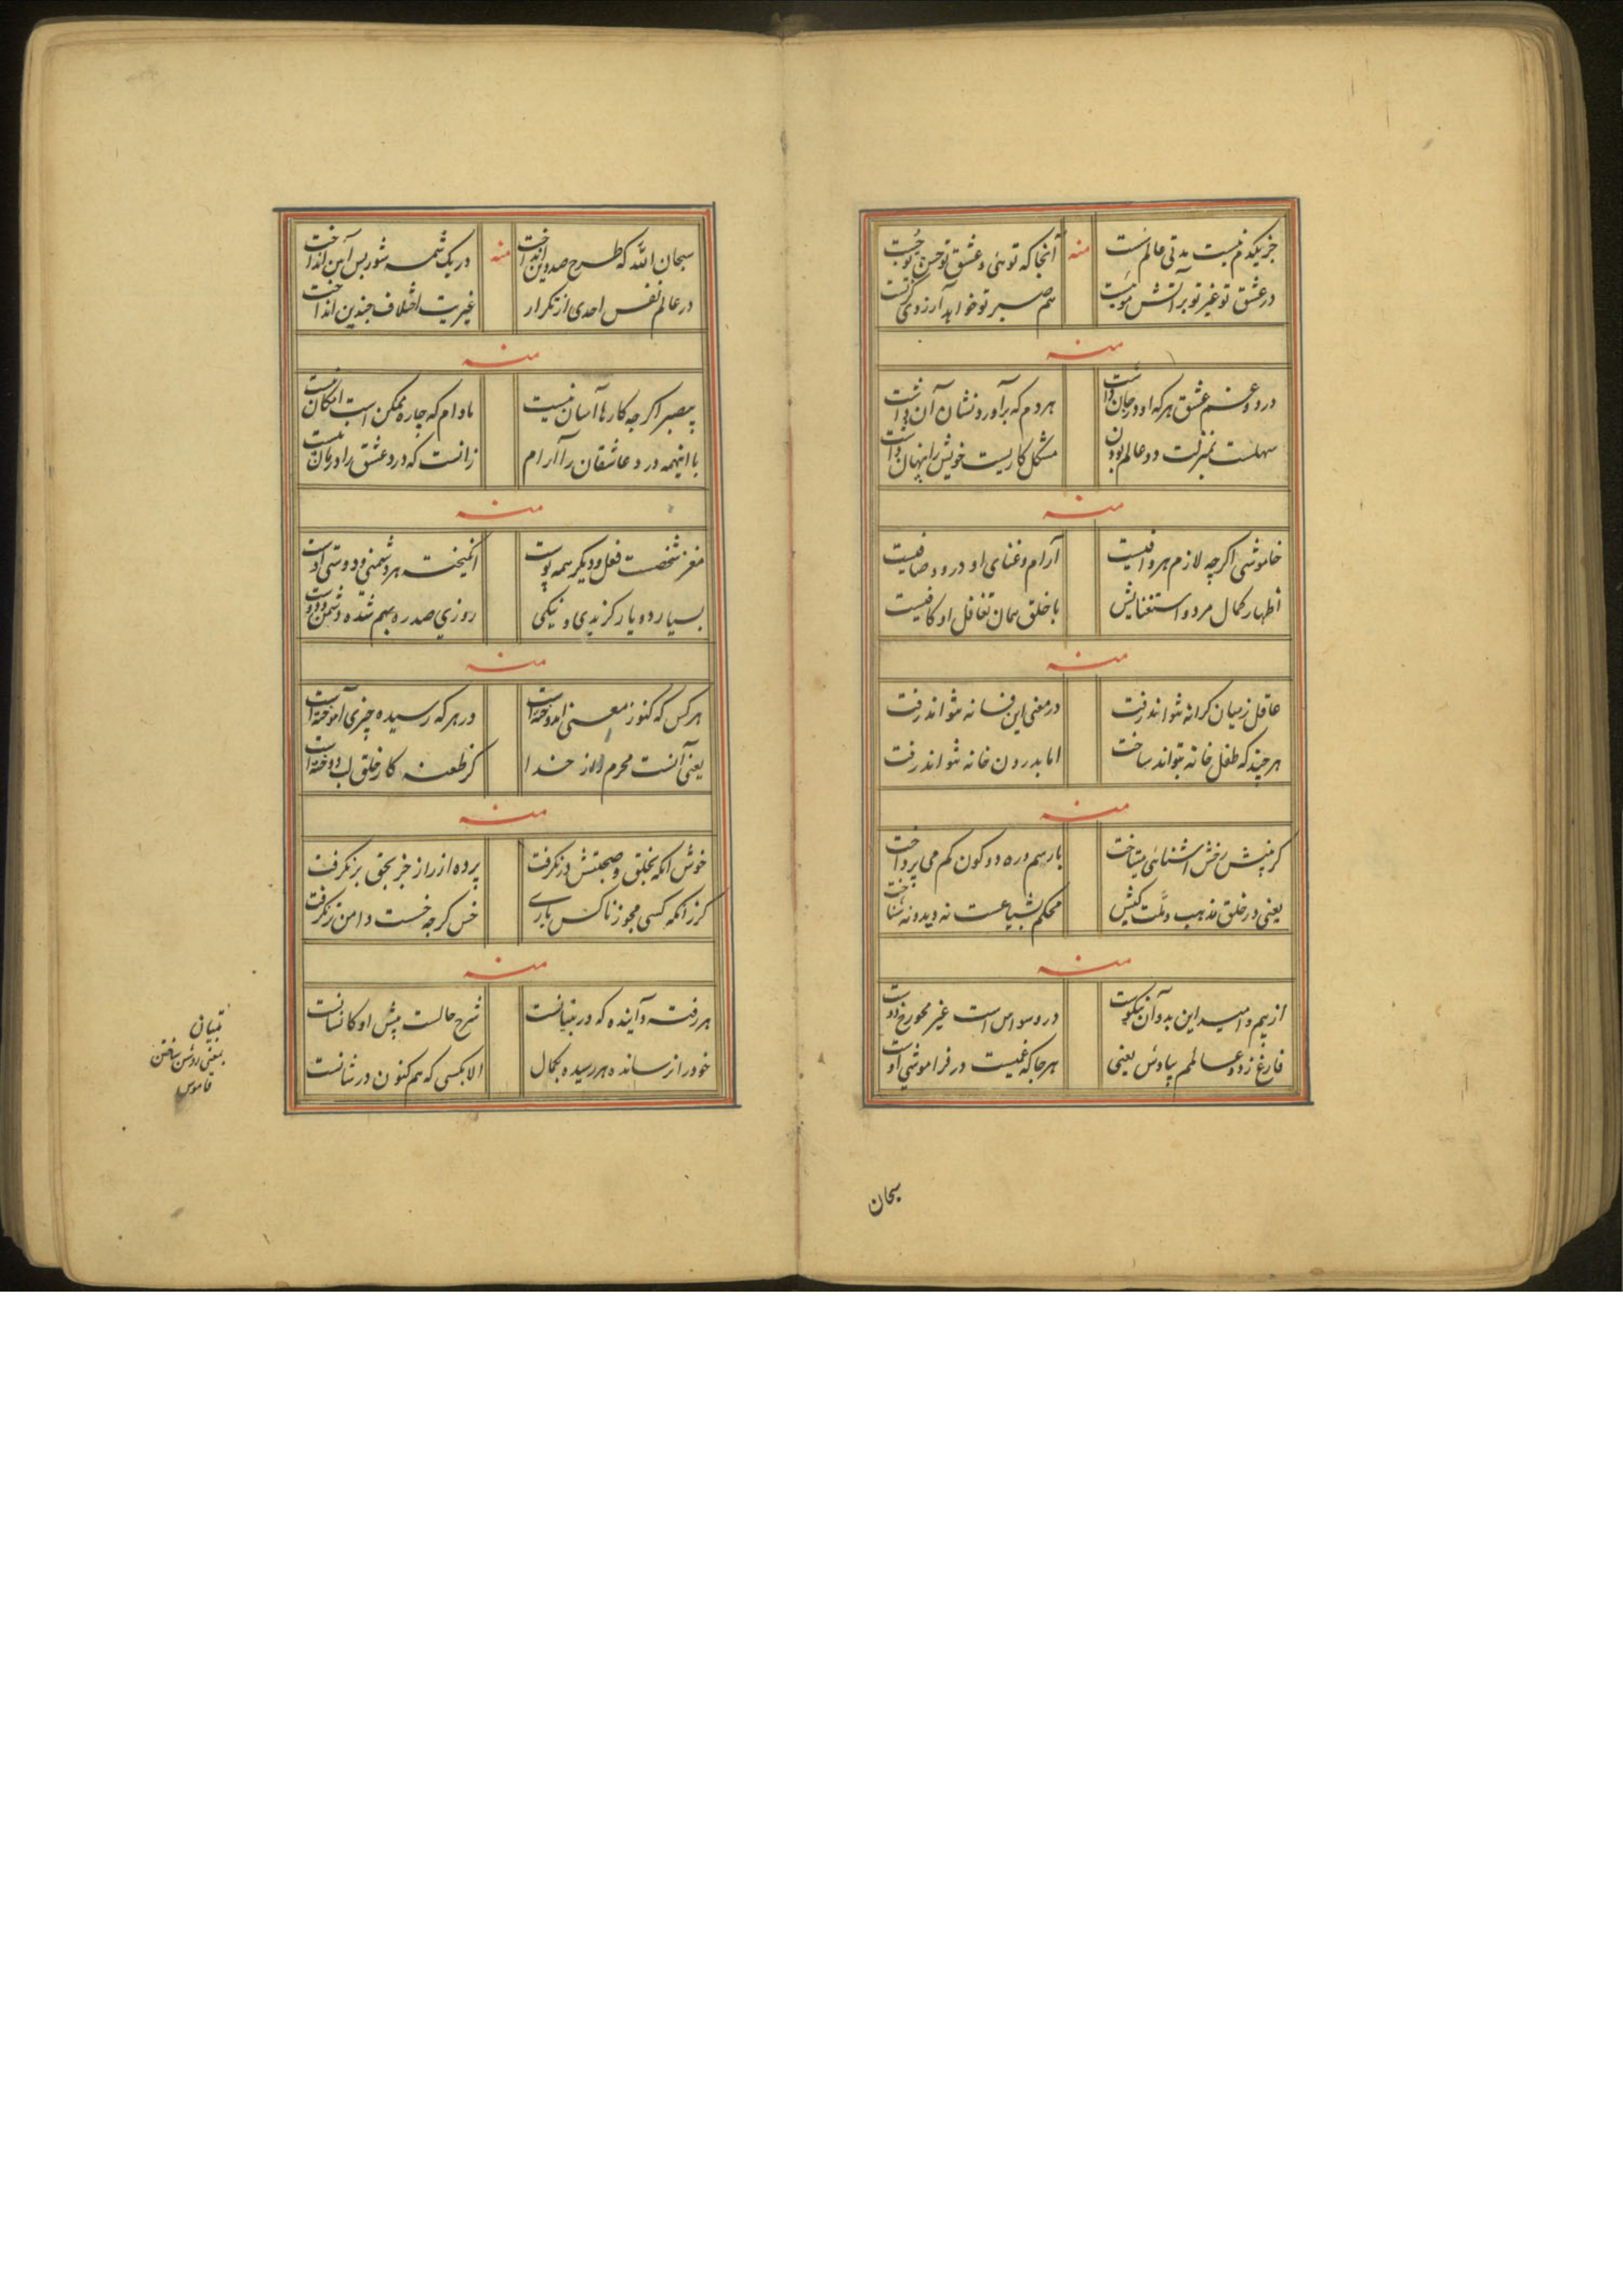 جز یکدم نیست مدتی عالم راست
منه
آنجا که توئی و عشق تو حسن تو جست
در عشق تو غیر تو بر آتش مویست
هم صبر تو خواهد آرزوی
منه
درد و غم عشق هر که او در جان داشت
هر دم که برآورد نشان آن داشت
سهلست بمنزلت دو عالم بودن
مشکل کاریست خویش را پنهان داشت
منه
خاموشی اگرچه لازم هر وافیست
آرام و غنای او در ود صافیست
اظهار کمال مرد و استغنایش
با خلق همان تغافل او کافیست
منه
عاقل زمیان کرانه نتواند رفت
در معنی این فسانه نتواند رفت
هر چند که طفل خانه بتواند ساخت
اما بدرون خانه نتواند رفت
منه
یعنی در خلق مذهب و ملت کیش
محکم نه دید و نه شناخت
منه
از بیم و امید این بد و آن نیکوست
در وسواس است غیر محو رخ دوست
فارغ زد و عالمم بیادش یعنی
هر جا که غمیست در فراموشی اوست
سبحان
سبحان الله که طرح صد دین انداخت
منه
در یک شمه شور بس آیین انداخت
در عالم نفس احدی از تکرار
غیریت اختلاف چندین انداخت
منه
بیصبر اگرچه کارها آسان نیست
مادام که چاره ممکن است امکان نیست
با اینهمه درد عاشقان را آرام
زانست که درد عشق را درمان نیست
منه
مغز شخصت فعل و دیگر همه پوست
انگیخته هر دشمنی و دوستی اوست
بسیار دو یار کز بدی و نیکی
روزی صد ره بهم شده دشمن و دوست
منه
هر کس که کنوز معنی اندوخته است
در هر که رسیده چیزی آموخته است
یعنی آنست محرم راز خدا
کز طعنه کار خلق لب دوخته است
منه
خوش آنکه بخلق و صحبتش در نگرفت
پرده از راز جز بحق بر نگرفت
گر زانکه کسی مجوز ناکس یاری
خس گرچه خست دامن تر نگرفت
منه
هر رفته و آینده که در تبیانست
شرح حالست پیش او کانسانست
خود را رسانده هر رسیده بکمال
الا بکسی که هم کنون در شانست
تبیان
بمعنی روشن ساختن
قاموس